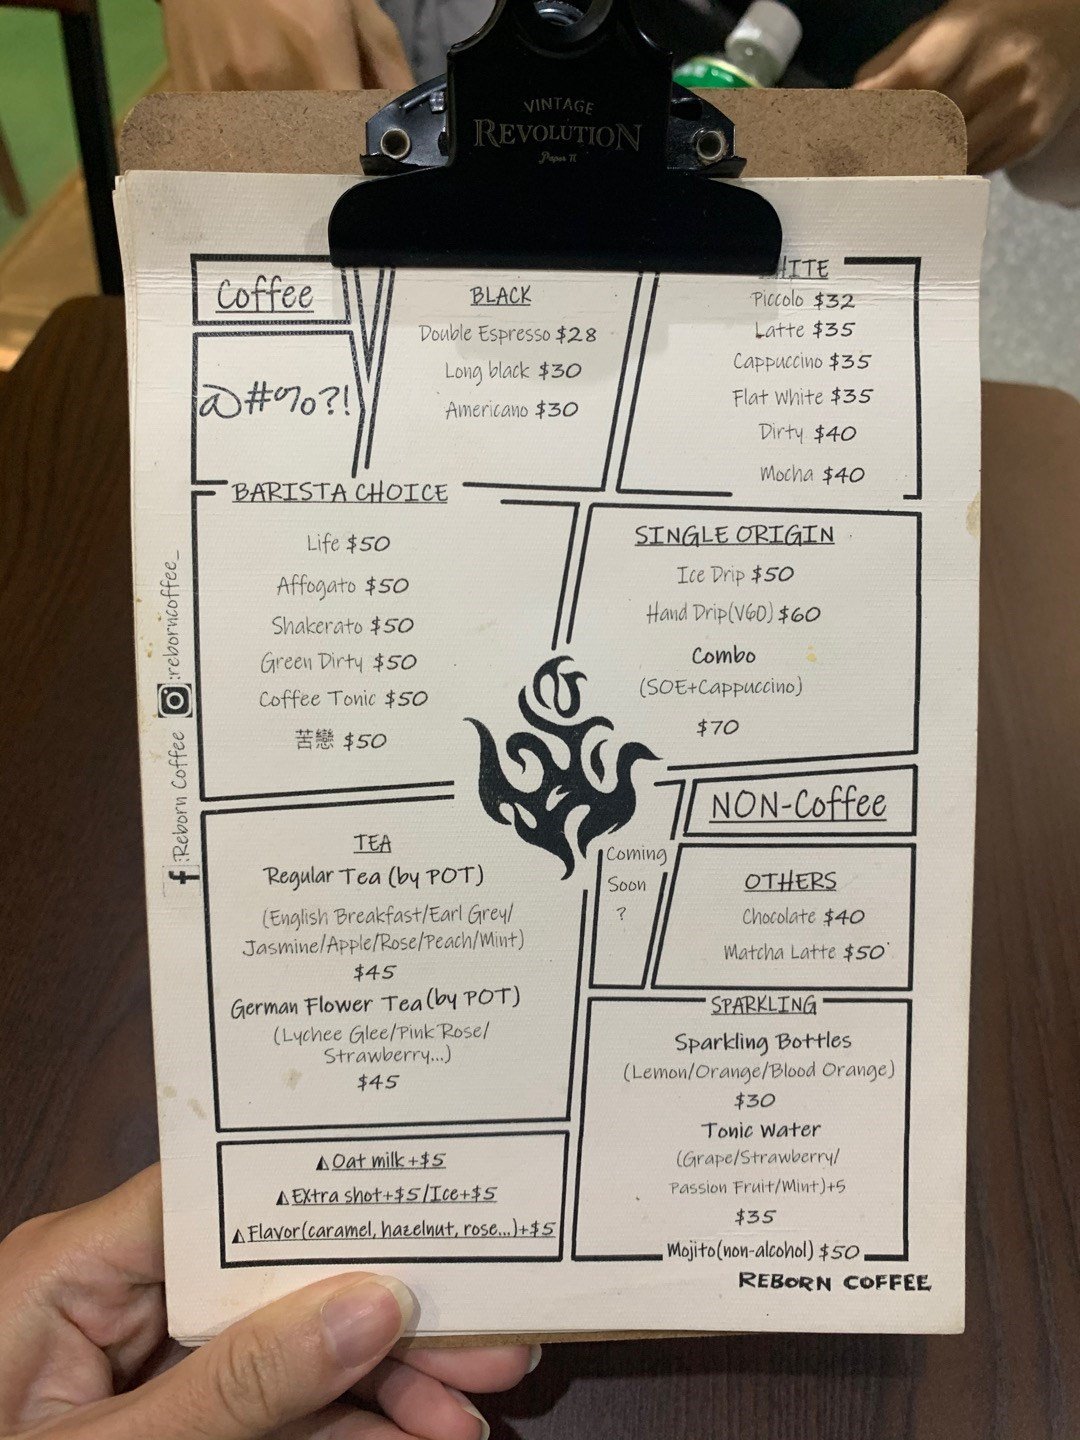 VINTAGE
REVOLUTION
Paper π
Coffee
@#%?!
BLACK
Double Espresso $28
Long black $30
Americano $30
HITE
Piccolo $32
Latte $35
Cappuccino $35
Flat White $35
Dirty $40
Mocha $40
BARISTA CHOICE
Life $50
Affogato $50
Shakerato $50
Green Dirty $50
Coffee Tonic $50
苦戀 $50
SINGLE ORIGIN
Ice Drip $50
Hand Drip(V60) $60
Combo
(SOE+Cappuccino)
$70
:reborncoffee_
f:Reborn Coffee
TEA
Regular Tea (by POT)
(English Breakfast/Earl Grey/
Jasmine/Apple/Rose/Peach/Mint)
$45
German Flower Tea(by POT)
(Lychee Glee/Pink Rose/
Strawberry...)
$45
Coming
Soon
?
NON-Coffee
OTHERS
Chocolate $40
Matcha Latte $50
SPARKLING
Sparkling Bottles
(Lemon/Orange/Blood Orange)
$30
Tonic Water
(Grape/Strawberry/
Passion Fruit/Mint)+5
$35
Mojito(non-alcohol) $50
Oat milk+$5
Extra shot+$5/Ice+$5
Flavor(caramel, hazelnut, rose...)+$5
REBORN COFFEE